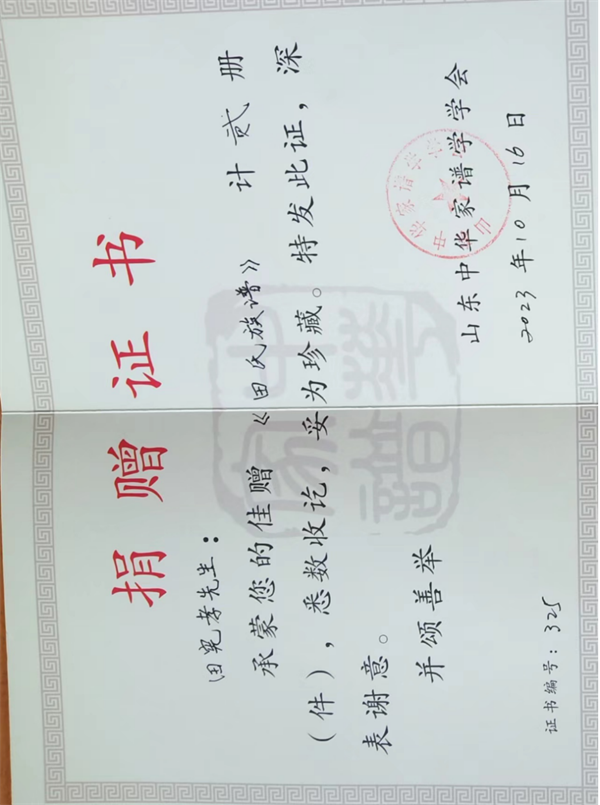 捐赠证书
田晃孝先生：
承蒙您的佳赠《田氏族谱》 计贰册
（件），悉数收讫，妥为珍藏。特发此证，深
表谢意。
并颂善举
山东中华家谱学学会
2023年10月16日
证书编号：325
中华家谱